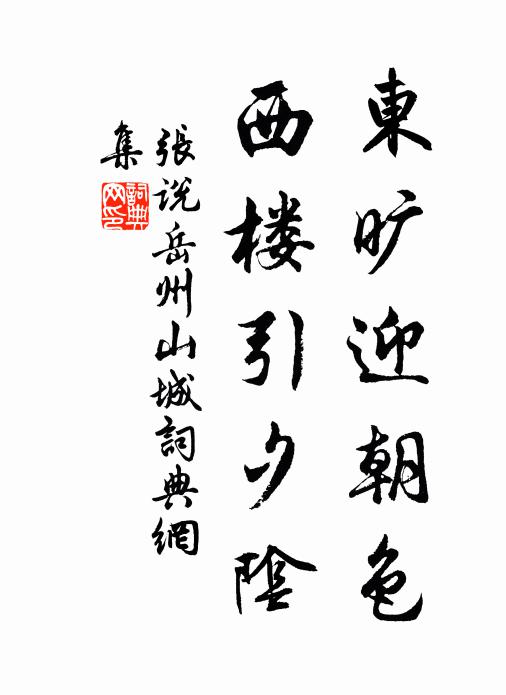 東旷迎朝色
西楼引夕陰
張说岳州山城詞典網
集
詞典
网印